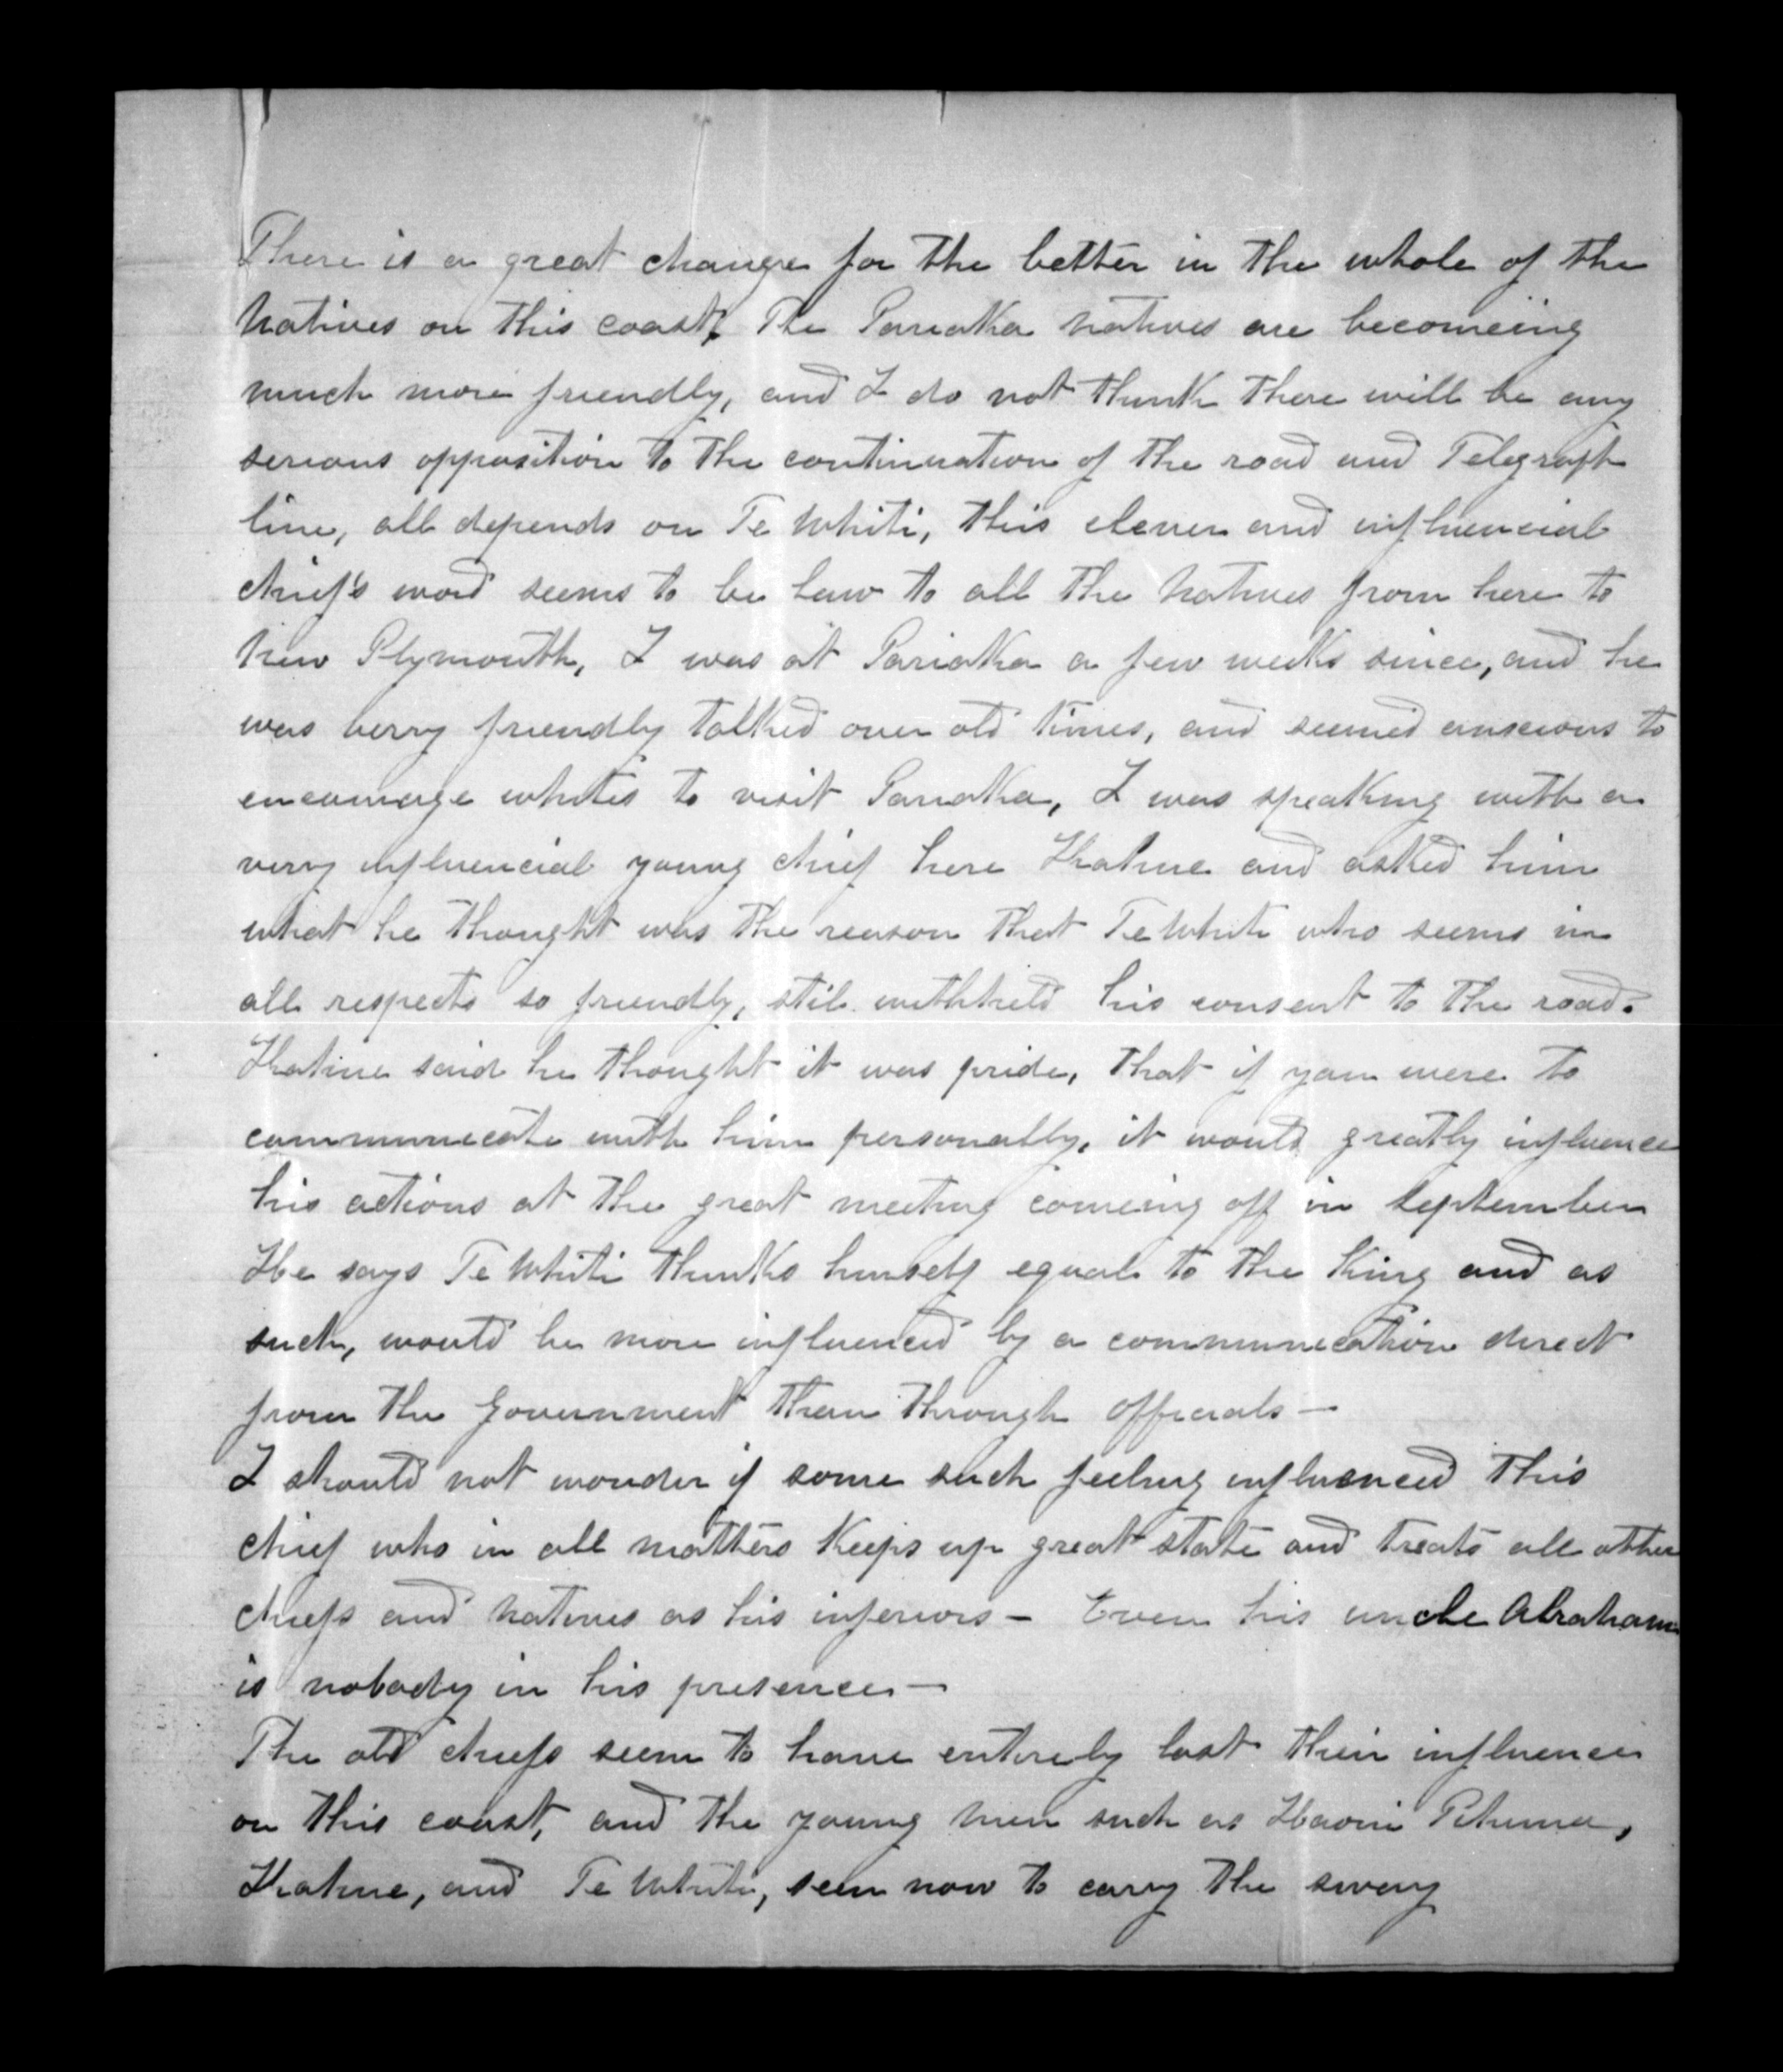 There is a great change for the better in the whole of the
Natives on this coast, The Pariaka Natives are becomeing
much more friendly, and I do not think there will be any
serious opposition to the continuation of the road and Telegraph
line, all depends on Te Whiti, this clever and influencial
chief's word seems to be law to all the Natives from here to
New Plymouth, I was at Pariaka a few weeks since, and he
was verry friendly talked over old times, and seemed anscious to
encourage whites to visit Pariaka, I was speaking with a
very influencial young chief here Katine and asked him
what he thought was the reason that Te Whiti who seems in
all respects so friendly, stil withheld his consent to the road.
Katine said he thought it was pride, that if you were to
communecate with him personally, it would greatly influence
his actions at the great meeting comeing off in September
He says Te Whiti thinks himself equal to the King and as
such, would be more influenced by a communecation direct
from the Government than through officials —
I should not wonder if some such feeling influenced this
chief who in all matters keeps up great state and treats all other
chiefs and Natives as his inferiors — Even his uncle Abraham
is nobody in his presence —
The old chiefs seem to have entirely lost their influence
on this coast, and the young men such as Hoani
Katine, and Te Whiti, seem now to carry the sway